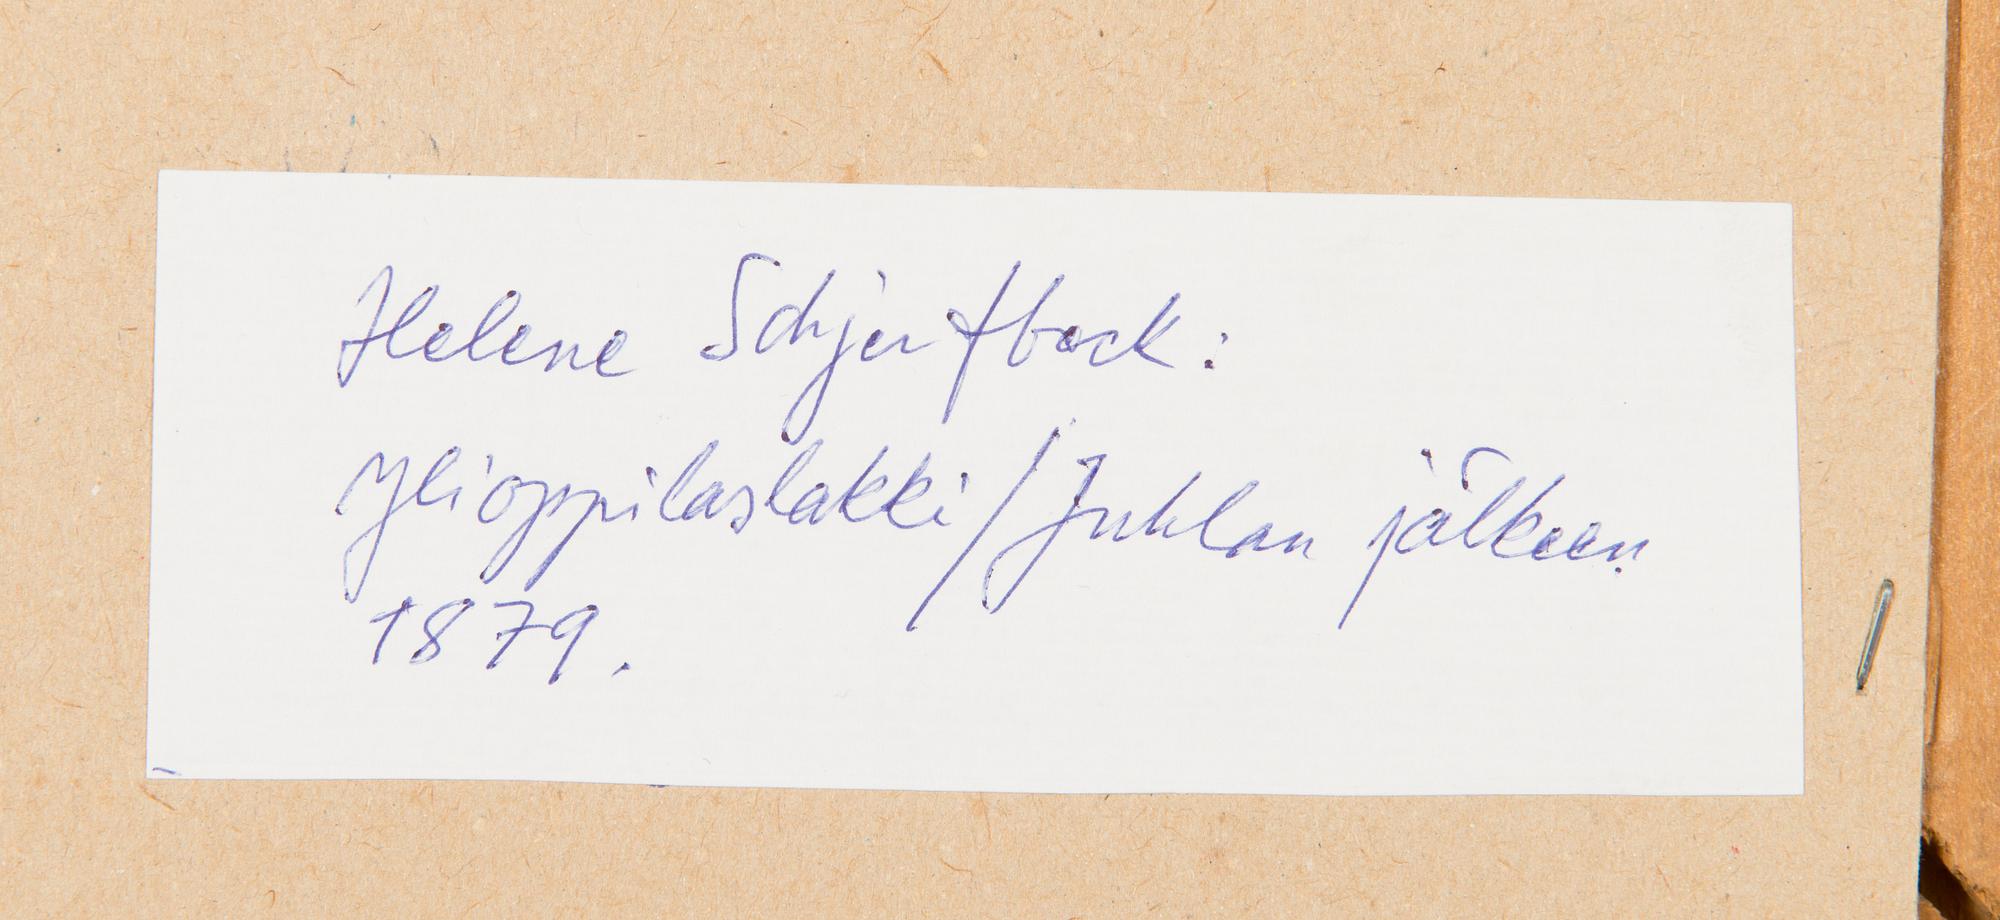 Helene Schjerfbeck:
Ylioppilaslakki/Juhlan jälkeen
1879.